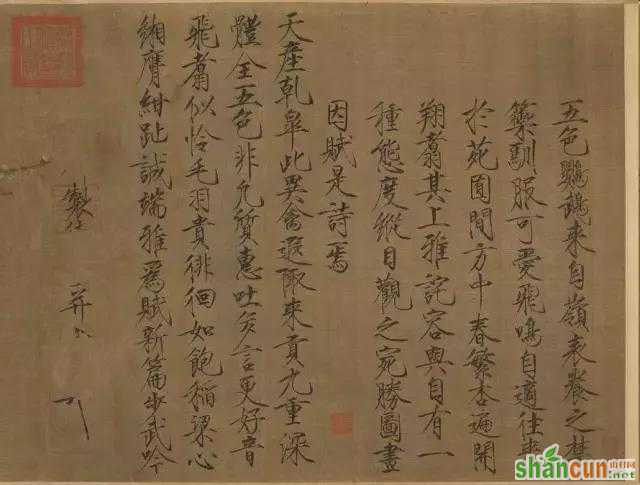 五色鸚鵡來自嶺表養之禁
籞馴服可愛飛鳴自適往來
於苑囿間方中春繁杏遍開
翔翥其上雅詫容與自有一
種態度縱目觀之宛勝圖畫
因賦是詩焉
天產乾皋此異禽遐陬來貢九重深
體全五色非凡質惠吐多言更好音
飛翥似憐毛羽貴徘徊如飽稻粱心
緗膺紺趾誠端雅為賦新篇步武吟
製
shancun
.net